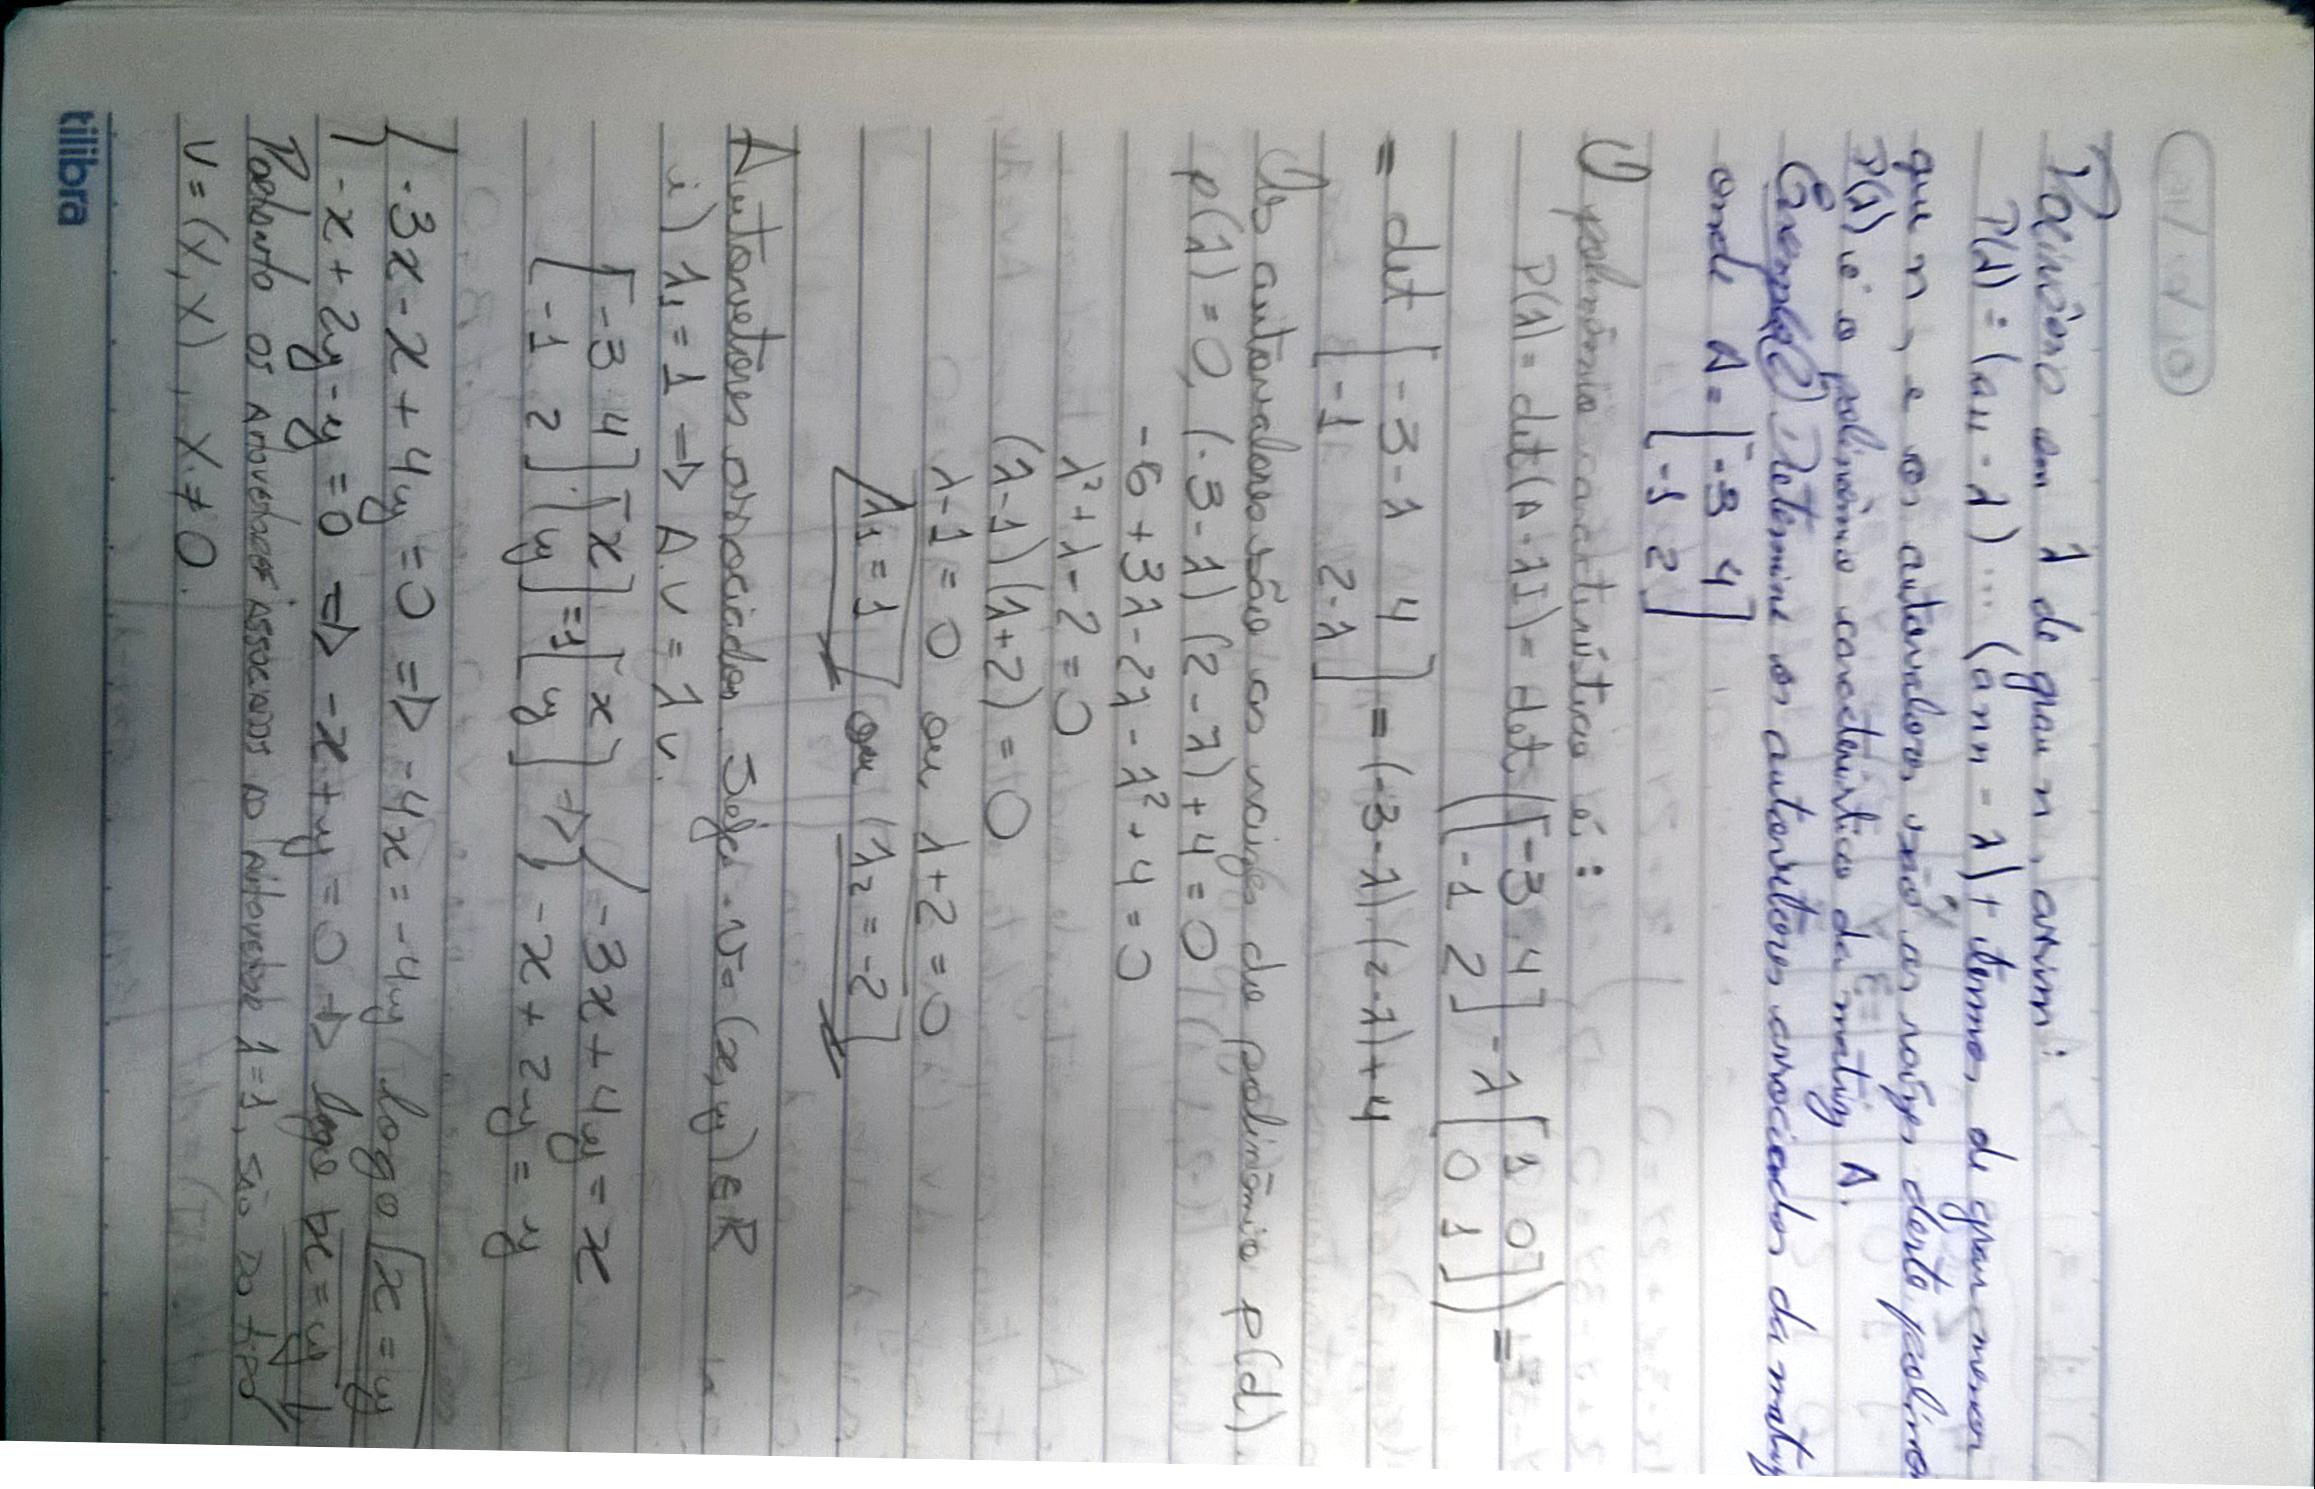 Polinômio em λ de grau n, assim:
P(λ) = (a11 - λ) ... (ann - λ) + termos de grau menor
que n, e os autovalores são as raízes deste polino
P(λ) é o polinômio característico da matriz A.
Exemplo 2) Determine os autovetores associados da matriz
onde A = [-3 4
-1 2]
O polinômio característico é:
P(λ) = det(A - λI) = det ([-3 4; -1 2] - λ [1 0; 0 1]) =
= det [-3-λ 4; -1 2-λ] = (-3-λ).(2-λ)+4
Os autovalores são as raizes do polinômio p(d).
p(λ) = 0, (-3-λ) (2-λ) + 4 = 0
-6 + 3λ - 2λ - λ² + 4 = 0
λ² + λ - 2 = 0
(λ-1) (λ+2) = 0
λ-1 = 0 ou λ+2 = 0
λ1 = 1 ou λ2 = -2
Autovetores associados. Seja v = (x, y) ∈ R
i) λ1 = 1 => A.v = λv.
[-3 4; -1 2] . [x; y] = 1 [x; y] => { -3x + 4y = x
-x + 2y = y
{ -3x - x + 4y = 0 => -4x = -4y logo x = y
-x + 2y - y = 0 => -x + y = 0 => logo x = y
Portanto os Atovetores associados ao autovetor λ=1, são do tipo
V = (X, X), X ≠ 0.
tilibra